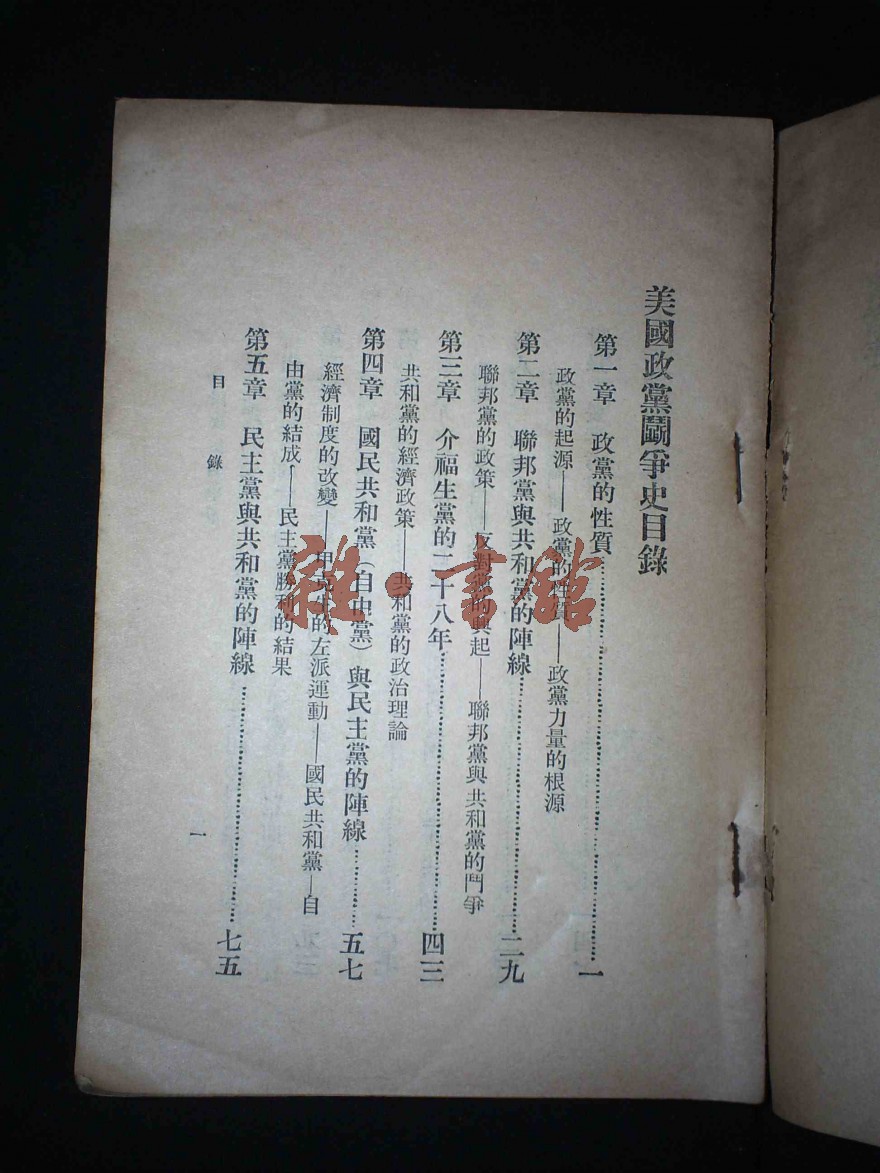 美國政黨鬭爭史目錄
第一章 政黨的性質…………一
政黨的起源——政黨的性質——政黨力量的根源
第二章 聯邦黨與共和黨的陣線…………二九
聯邦黨的政策——反對黨的興起——聯邦黨與共和黨的鬥爭
第三章 介福生黨的二十八年…………四三
共和黨的經濟政策——共和黨的政治理論
第四章 國民共和黨(自由黨)與民主黨的陣線…………五七
經濟制度的改變——甲克生的左派運動——國民共和黨—自
由黨的結成——民主黨勝利的結果
第五章 民主黨與共和黨的陣線…………七五
目 錄
一
雜·書館